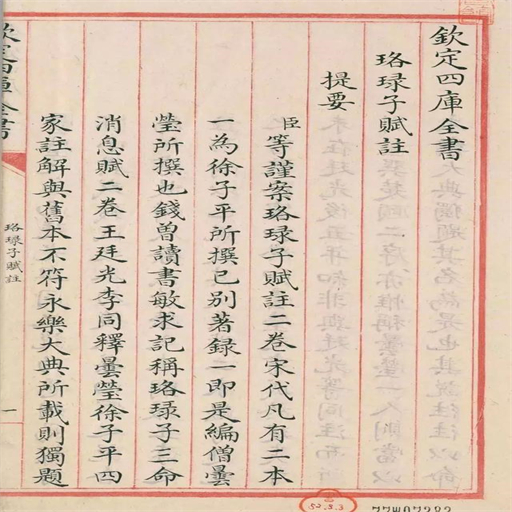 欽定四庫全書
珞琭子賦註
提要
臣等謹案珞琭子賦註二卷宋代凡有二本
一為徐子平所撰已别著録一即是編僧曇
瑩所撰也錢曾讀書敏求記稱珞琭子三命
消息賦二卷王廷光李同釋曇瑩徐子平四
家註解與舊本不符永樂大典所載則獨題
欽定四庫全書
珞琭子賦註
一
52.8.3